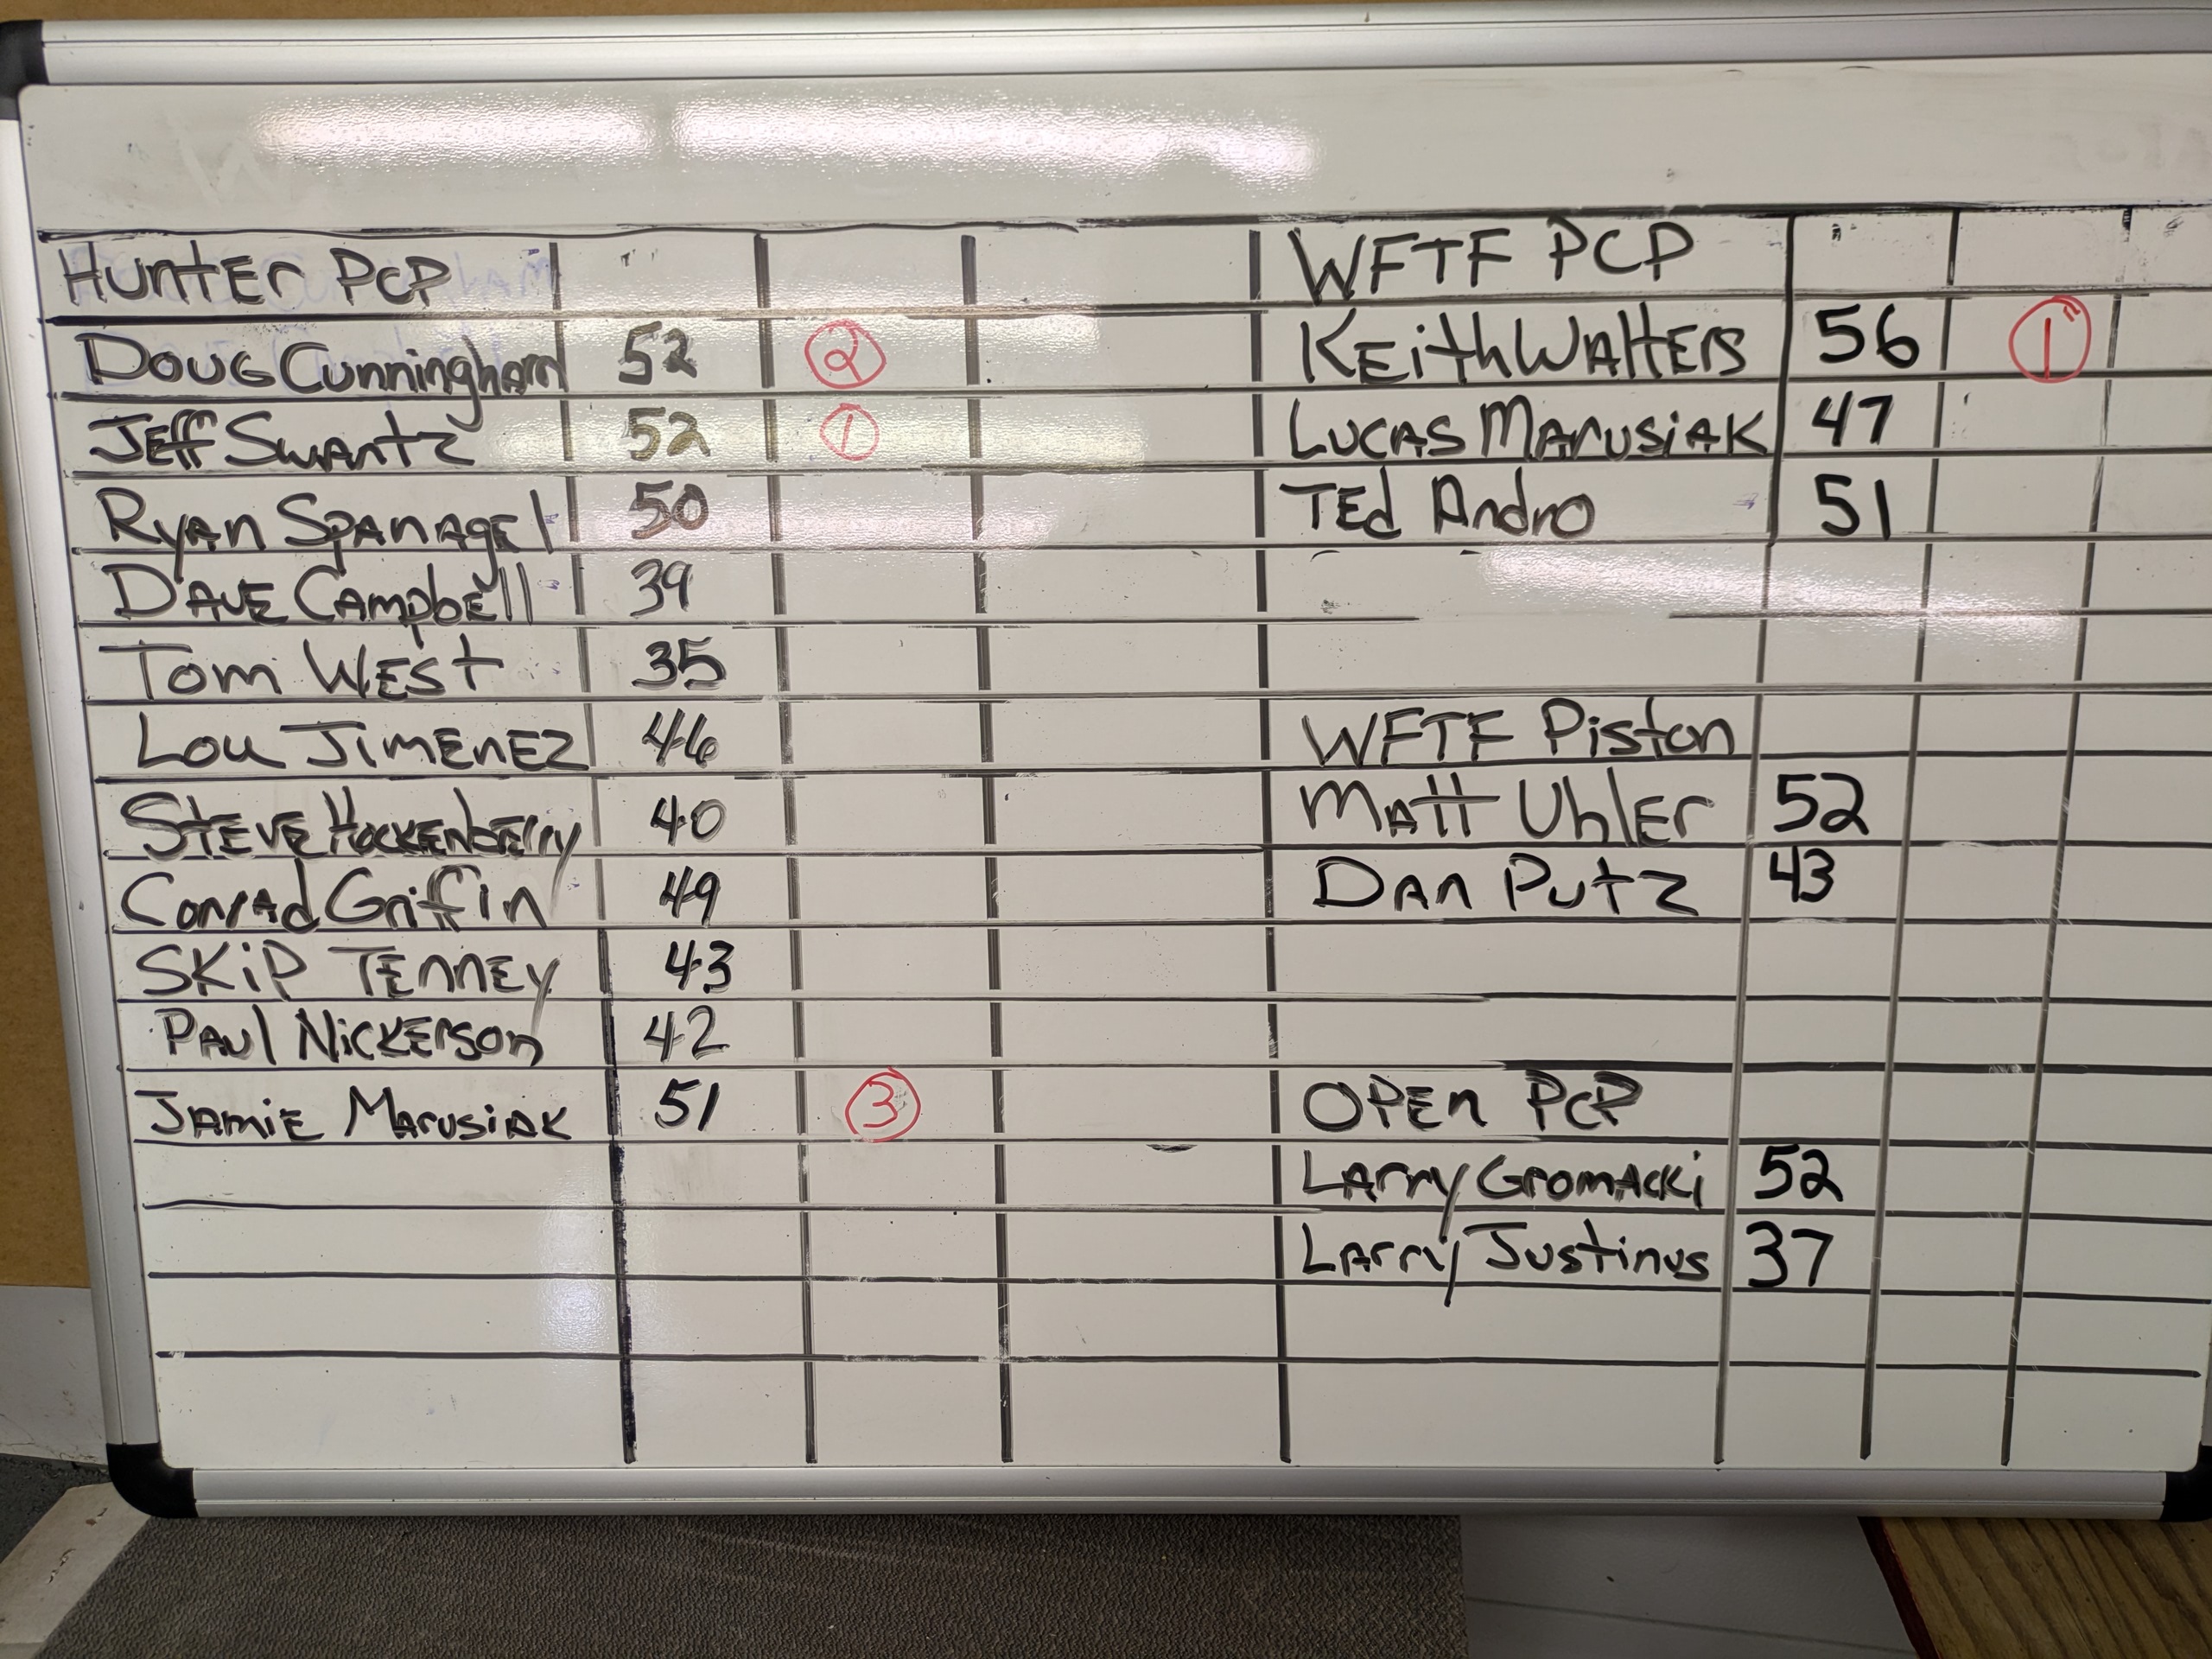 Hunter PCP
Doug Cunningham 52 2
Jeff Swartz 52 1
Ryan Spanagel 50
Dave Campbell 39
Tom West 35
Lou Jimenez 46
Steve Hockenberry 40
Conrad Griffin 49
Skip Tenney 43
Paul Nickerson 42
Jamie Marusiak 51 3
WFTF PCP
Keith Walters 56 1
Lucas Marusiak 47
Ted Andro 51
WFTF Piston
Matt Uhler 52
Dan Putz 43
Open PCP
Larry Gromacki 52
Larry Justinus 37